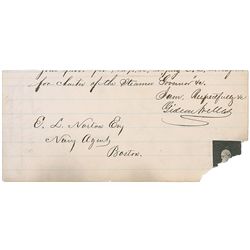 for Charter of the Steamer Governor &c.
I am, Respectfully &c
Gideon Welles
E. L. Norton Esq
Navy Agent,
Boston.